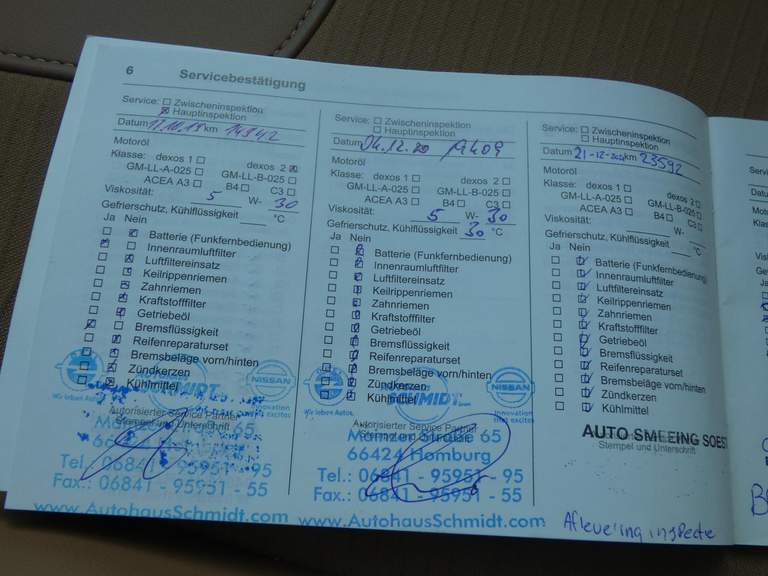 6 Servicebestätigung
Service: Zwischeninspektion
Hauptinspektion
Datum km 14942
Motoröl
Klasse: dexos 1 dexos 2
GM-LL-A-025 GM-LL-B-025
ACEA A3 B4 C3
Viskosität: 5 W- 30
Gefrierschutz, Kühlflüssigkeit °C
Ja Nein
Batterie (Funkfernbedienung)
Innenraumluftfilter
Luftfiltereinsatz
Keilrippenriemen
Zahnriemen
Kraftstofffilter
Getriebeöl
Bremsflüssigkeit
Reifenreparaturset
Bremsbeläge vorn/hinten
Zündkerzen
Kühlmittel
NISSAN
Autorisierter Service Partner
Stempel und Unterschrift
65
Tel.: 06841 - 95951 - 95
Fax.: 06841 - 95951 - 55
www.AutohausSchmidt.com
Service: Zwischeninspektion
Hauptinspektion
Datum 04.12.20
Motoröl
Klasse: dexos 1 dexos 2
GM-LL-A-025 GM-LL-B-025
ACEA A3 B4 C3
Viskosität: 5 W- 30
Gefrierschutz, Kühlflüssigkeit 30 °C
Ja Nein
Batterie (Funkfernbedienung)
Innenraumluftfilter
Luftfiltereinsatz
Keilrippenriemen
Zahnriemen
Kraftstofffilter
Getriebeöl
Bremsflüssigkeit
Reifenreparaturset
Bremsbeläge vorn/hinten
Zündkerzen
Kühlmittel
NISSAN
Wir leben Autos.
Autorisierter Service Partner
Stempel und Unterschrift
Straße 65
66424 Homburg
Tel.: 06841 - 95951 - 95
Fax.: 06841 - 95951 - 55
www.AutohausSchmidt.com
Service: Zwischeninspektion
Hauptinspektion
Datum km 23592
Motoröl
Klasse: dexos 1 dexos 2
GM-LL-A-025 GM-LL-B-025
ACEA A3 B4 C3
Viskosität: W-
Gefrierschutz, Kühlflüssigkeit °C
Ja Nein
Batterie (Funkfernbedienung)
Innenraumluftfilter
Luftfiltereinsatz
Keilrippenriemen
Zahnriemen
Kraftstofffilter
Getriebeöl
Bremsflüssigkeit
Reifenreparaturset
Bremsbeläge vorn/hinten
Zündkerzen
Kühlmittel
AUTO SMEEING SOEST
Stempel und Unterschrift
Aflevering inspectie